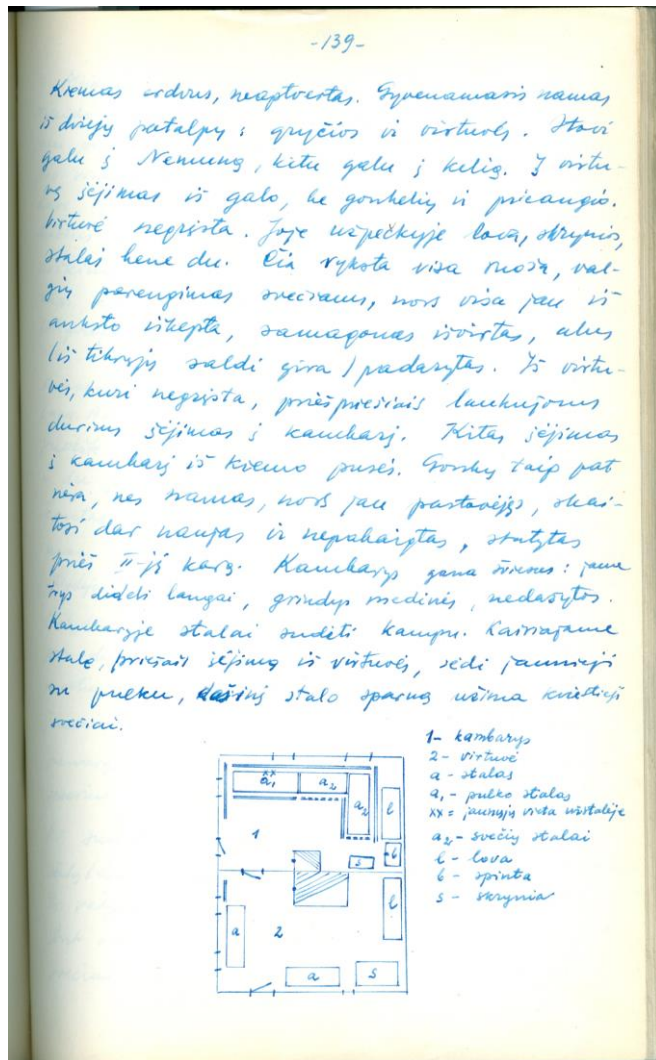 -139-
Kiemas erdvus, neaptvertas. Gyvenamasis namas
iš dviejų patalpų: gryčios ir virtuvės. Stovi
galu į Nemuną, kitu galu į kelią. Į virtu-
vę įėjimas iš galo, be gonkelių ir prieangio.
Virtuvė negrįsta. Joje užpečkyje lova, skrynios,
stalai bene du. Čia vyksta visa ruoša, val-
gių parengimas svečiams, nors visa jau iš
anksto iškepta, samagonas išvirtas, alus
(iš tikrųjų saldi gira) padarytas. Iš virtu-
vės, kuri negrįsta, priešpriešiais laukujoms
durims įėjimas į kambarį. Kitas įėjimas
į kambarį iš kiemo pusės. Gonkų taip pat
nėra, nes namas, nors jau pastovėjęs, skai-
tosi dar naujas ir nepabaigtas, statytas
prieš II-jį karą. Kambarys gana šviesus: jame
trys dideli langai, grindys medinės, nedažytos.
Kambaryje stalai sudėti kampu. Kairiajame
stale, priešais įėjimą iš virtuvės, sėdi jaunieji
su pulku, dešinį stalo sparną užima kviestieji
svečiai.
1- kambarys
2- virtuvė
a - stalas
a₁ - pulko stalas
xx = jaunųjų vieta užstalėje
a₂ - svečių stalai
l - lova
b - spinta
s - skrynia
xx
a₁ a₂ a₂ l
1 s b
2 l
a
a s